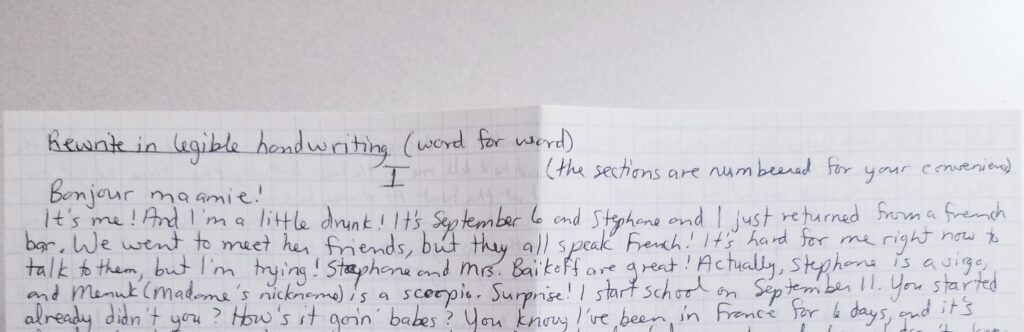 Rewrite in legible handwriting (word for word)
I
(the sections are numbered for your convenienc
Bonjour ma amie!
It's me! And I'm a little drunk! It's September 6 and Stephane and I just returned from a french
bar. We went to meet her friends, but they all speak French! It's hard for me right now to
talk to them, but I'm trying! Stephane and Mrs. Baikoff are great! Actually, Stephane is a virgo,
and Menuk (Madame's nickname) is a scorpio. Surprise! I start school on September 11. You started
already didn't you? How's it goin' babes? You know I've been in France for 6 days, and it's